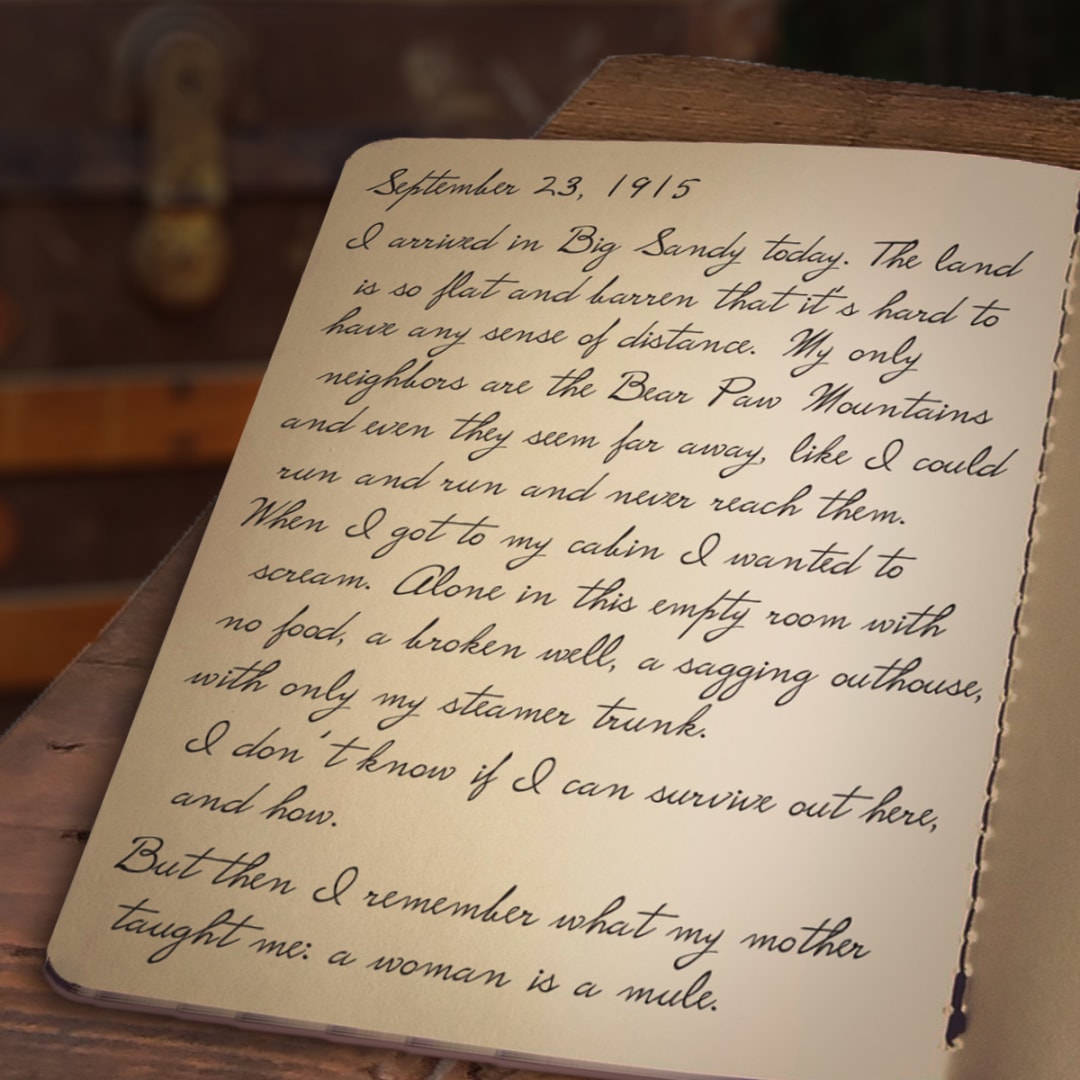 September 23, 1915
I arrived in Big Sandy today. The land
is so flat and barren that it's hard to
have any sense of distance. My only
neighbors are the Bear Paw Mountains
and even they seem far away, like I could
run and run and never reach them.
When I got to my cabin I wanted to
scream. Alone in this empty room with
no food, a broken well, a sagging outhouse,
with only my steamer trunk.
I don't know if I can survive out here,
and how.
But then I remember what my mother
taught me: a woman is a mule.